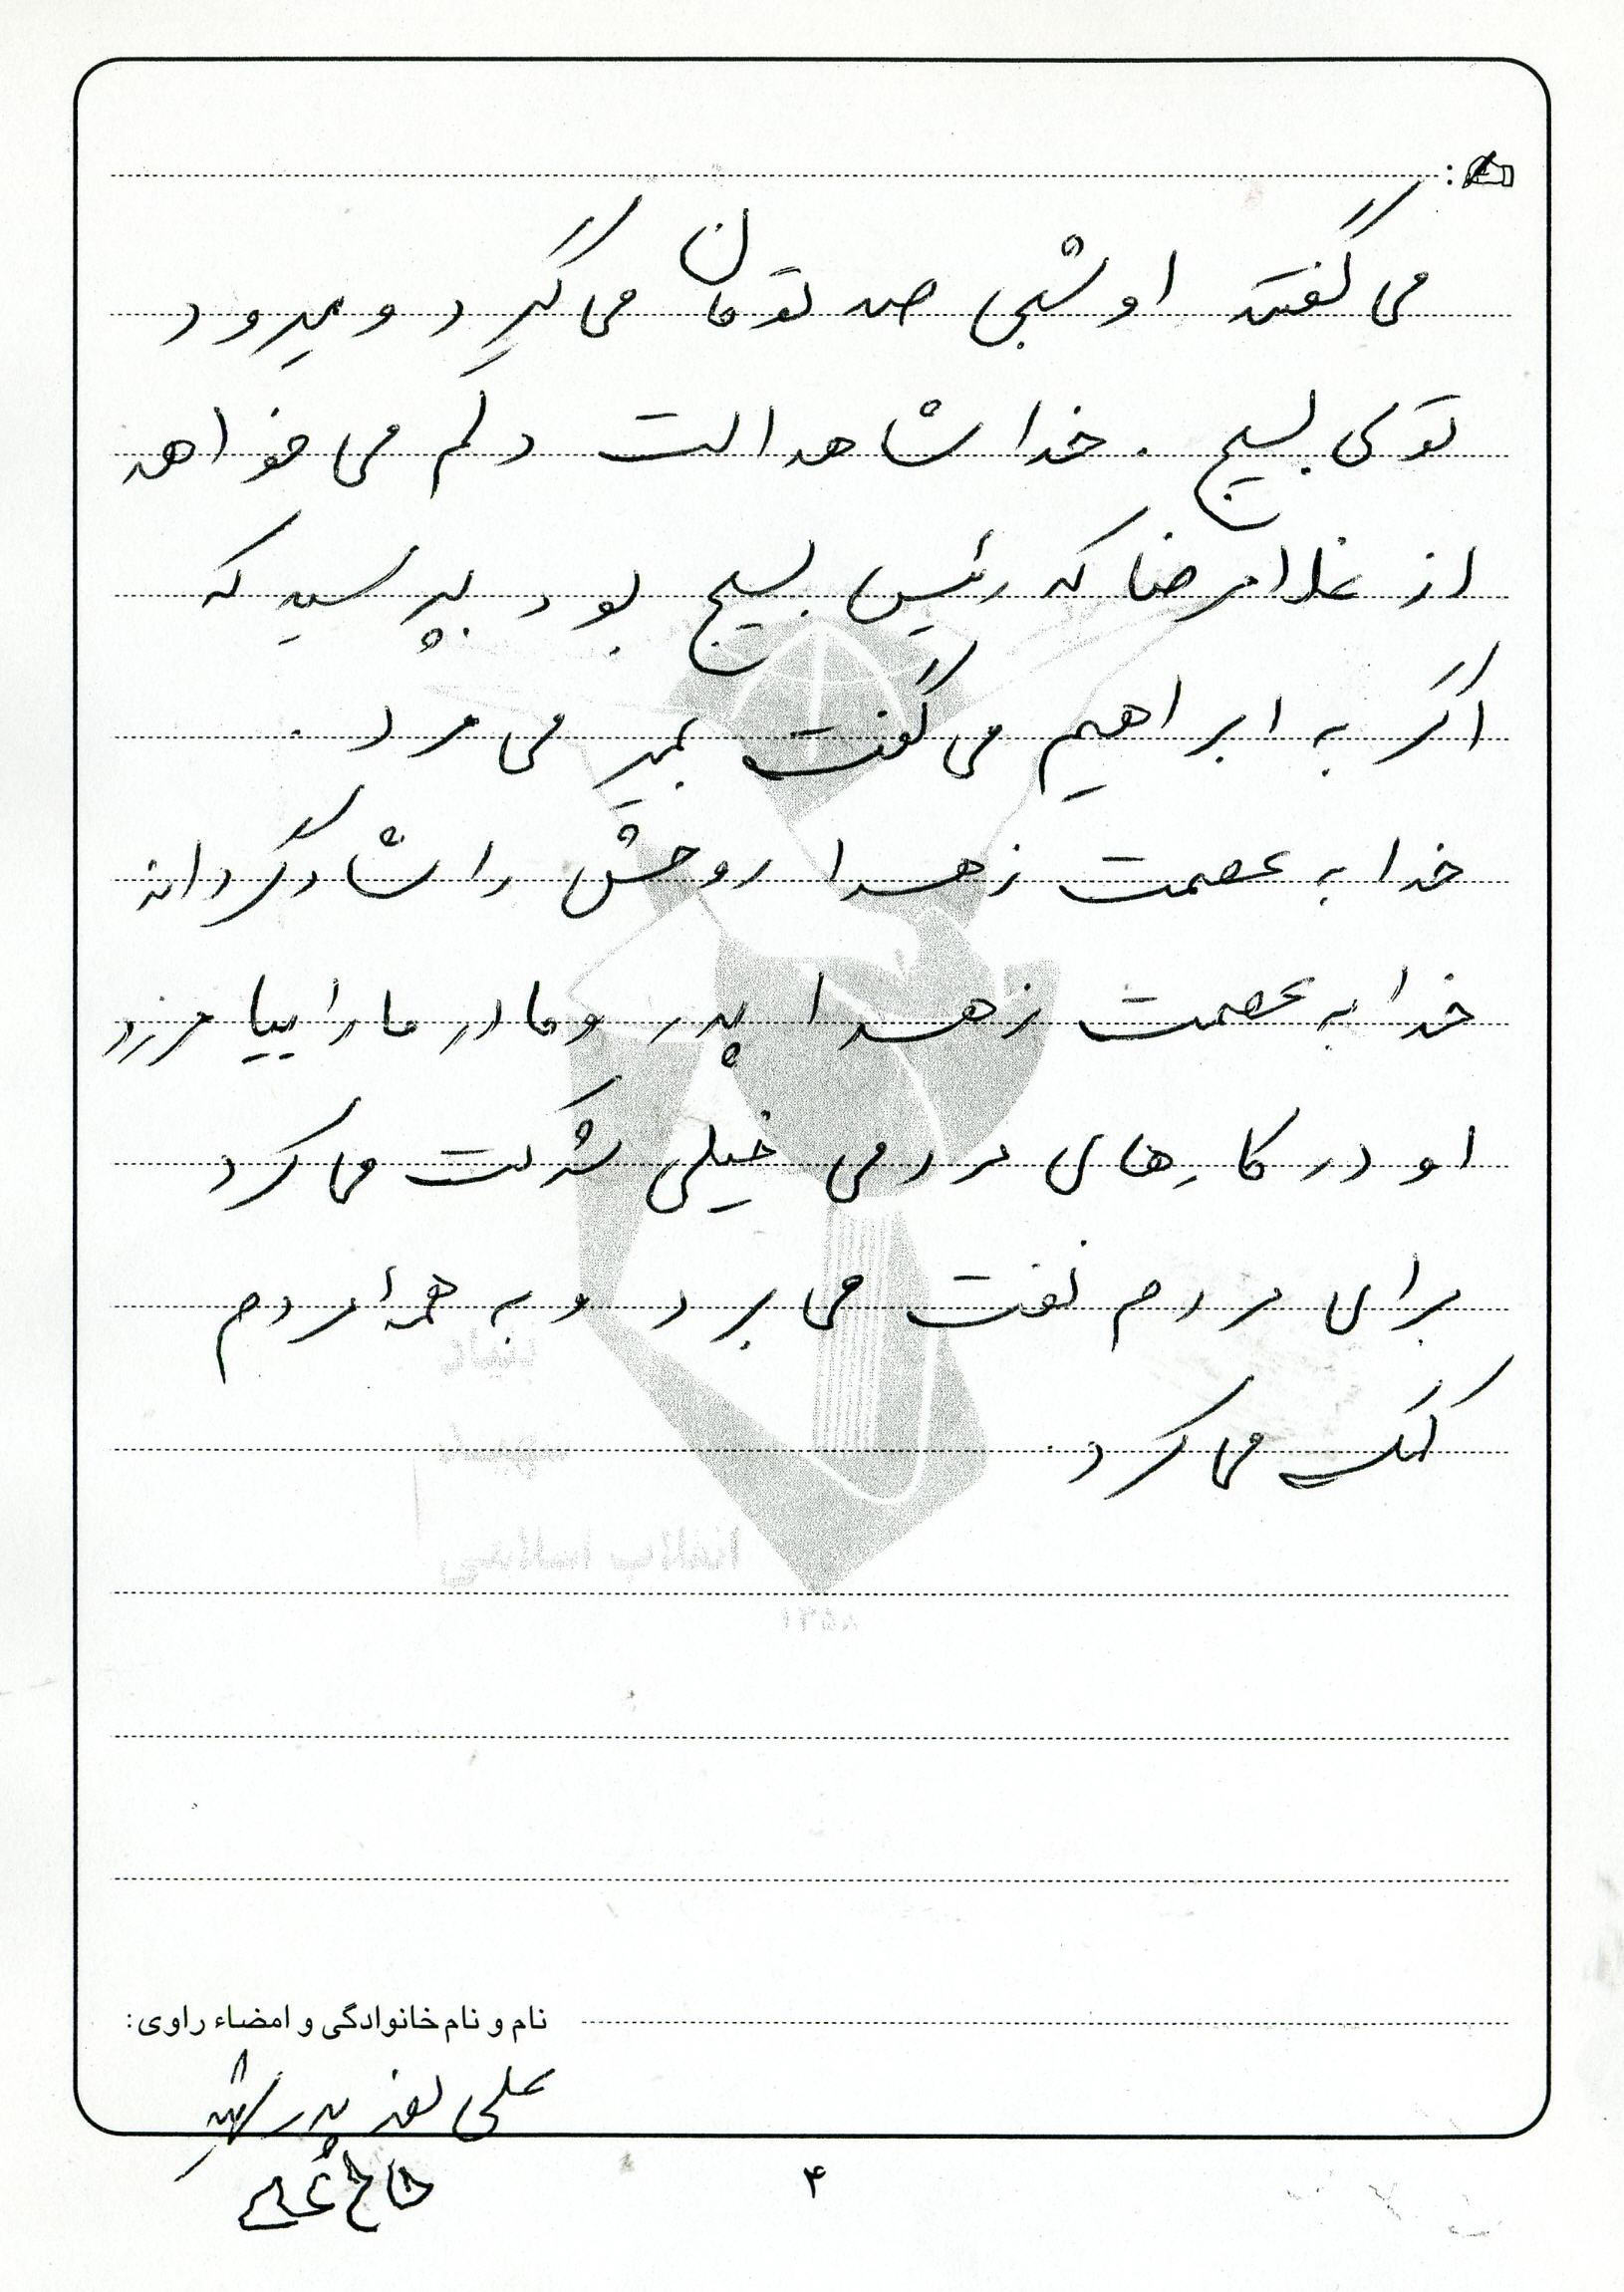 می گفتند او شبی صد تومان می گیرد و میرود
توی بسیج . خدا شاهد است دلم می خواهد
از غلامرضا که رئیس بسیج بود بپرسید که
اگر به ابراهیم می گفت بمیر می مرد .
خدا به عصمت زهرا روحش را شاد گرداند
خدا به عصمت زهرا پدر و مادر ما را بیامرزد
او در کارهای مردمی خیلی شرکت می کرد
برای مردم نفت می برد و به همهٔ مردم
کمک می کرد.
بنیاد
شهید
انقلاب اسلامی
۱۳۵۸
نام و نام خانوادگی و امضاء راوی:
علی پدر شهید
۴